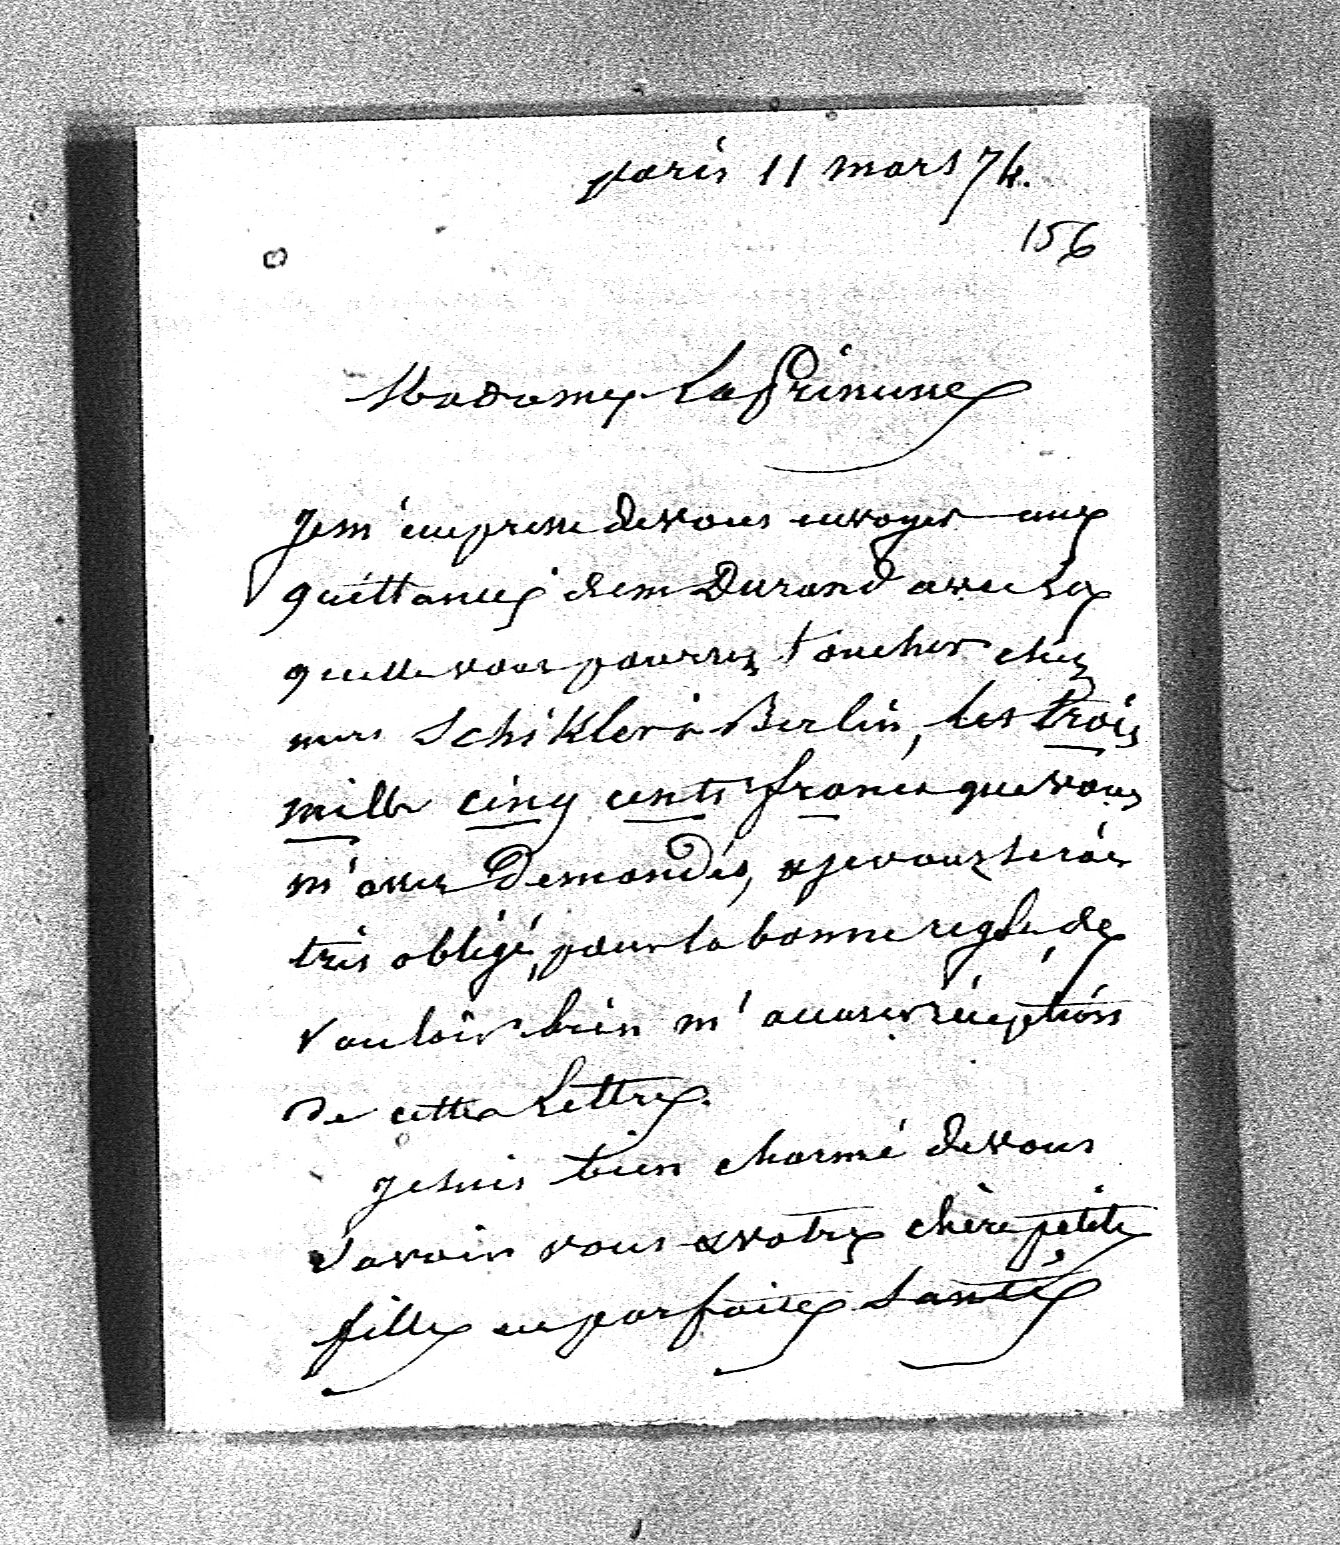 paris 11 mars 74.
156
Madame La Princesse
Je m'empresse de vous envoyer une
quittance de m Durand avec la
quelle vous pourrez toucher chez
mrs Schikler à Berlin, les trois
mille cinq cents francs que vous
m'avez demandés, & je vous serais
très obligé, pour la bonne règle, de
vouloir bien m'accuser réception
de cette Lettre.
je suis bien charmé de vous
savoir vous & votre chère petite
fille en parfaite santé